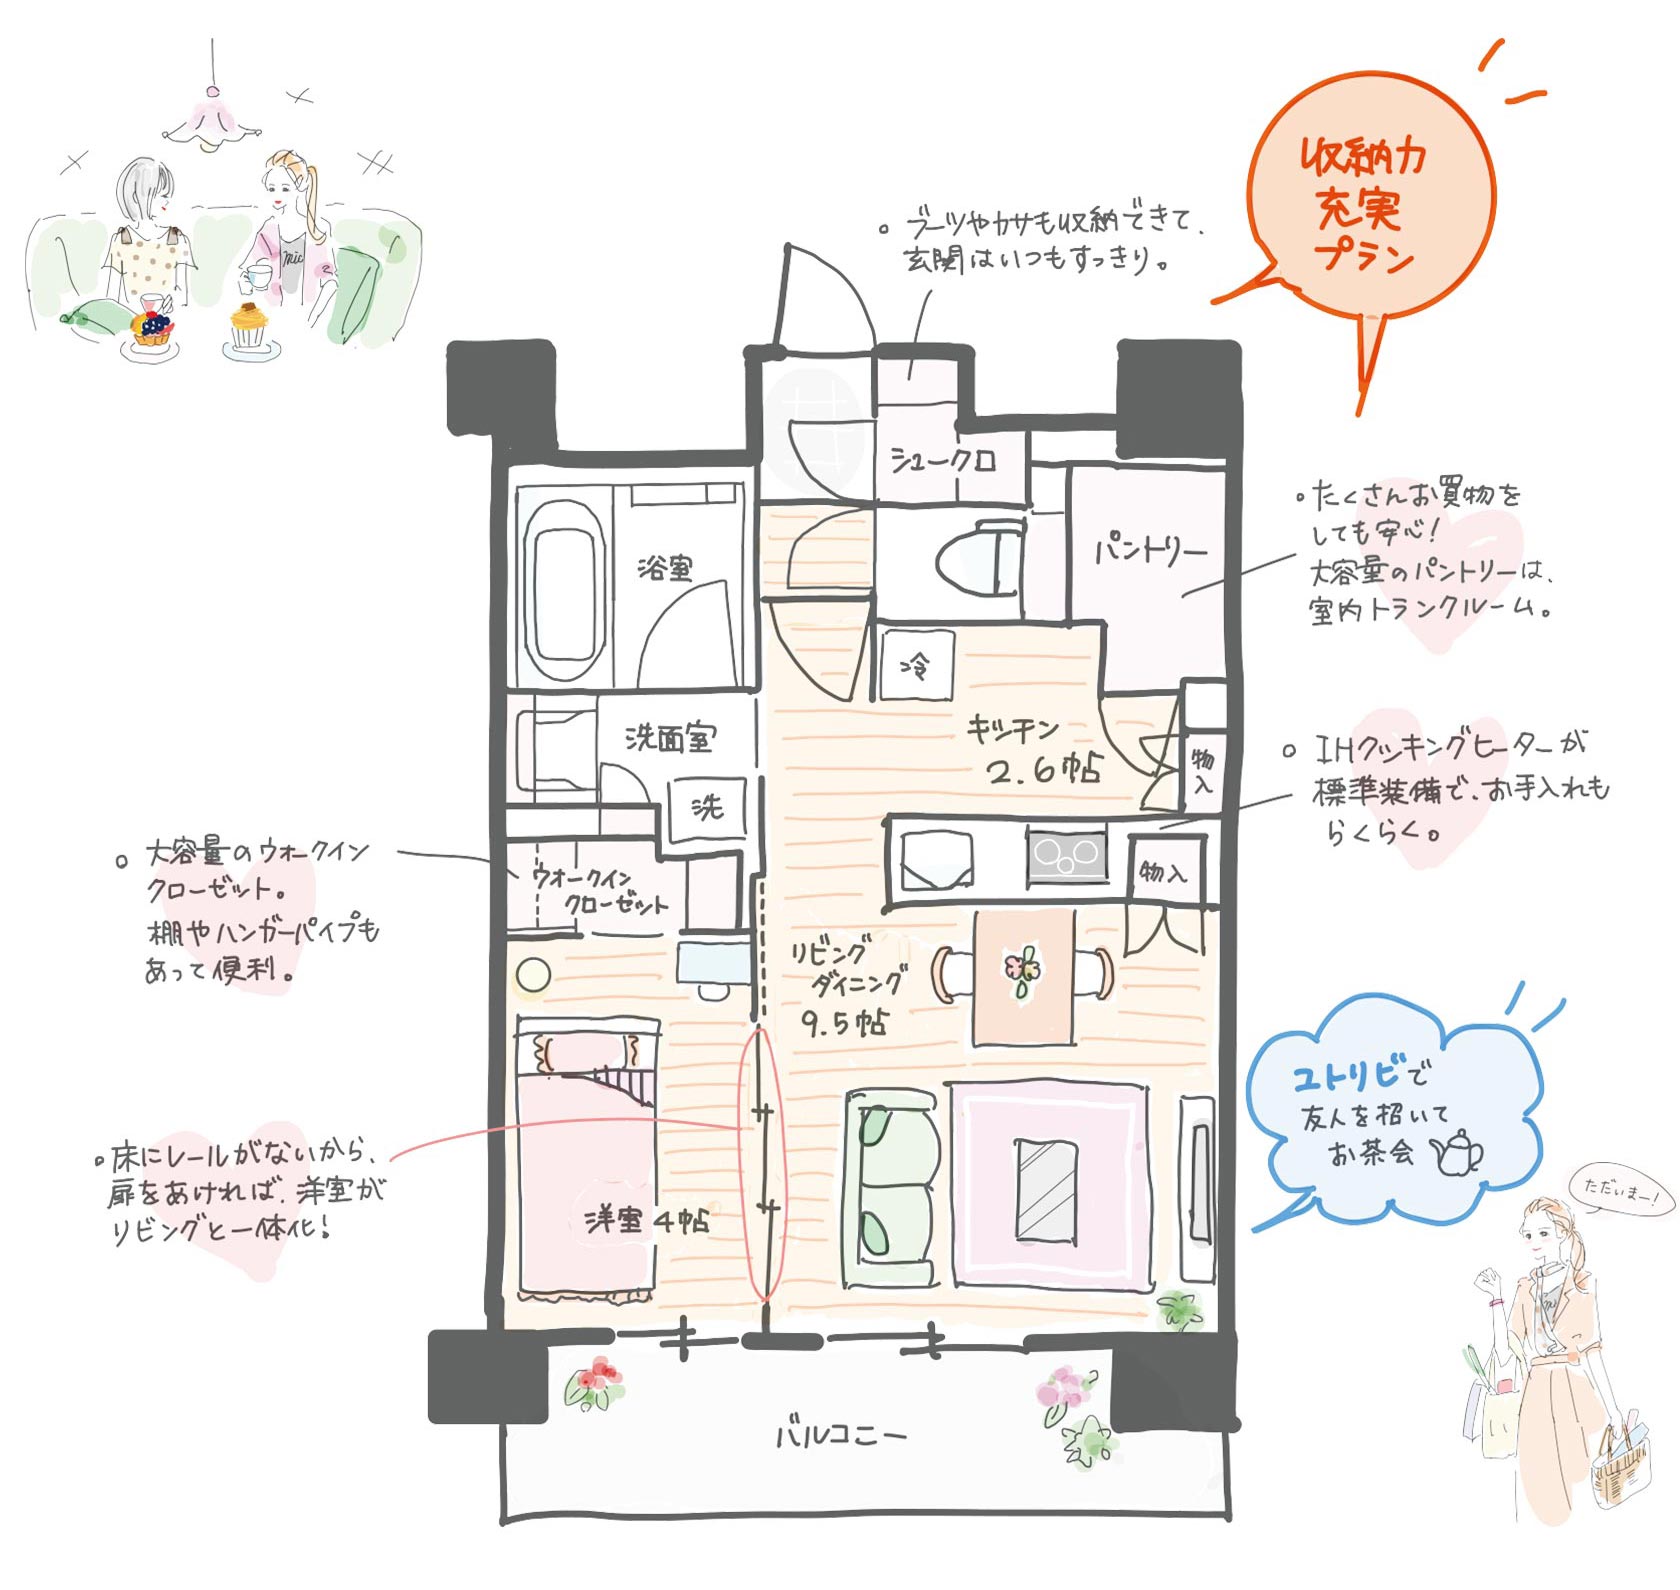 収納力
充実
プラン
ブーツやカサも収納できて、
玄関はいつもすっきり。
mic
シュークロ
パントリー
たくさんお買物を
しても安心!
大容量のパントリーは、
室内トランクルーム。
浴室
冷
キッチン
2.6帖
物
入
洗面室
洗
IHクッキングヒーターが
標準装備で、お手入れも
らくらく。
大容量のウォークイン
クローゼット。
棚やハンガーパイプも
あって便利。
ウォークイン
クローゼット
物入
リビング
ダイニング
9.5帖
床にレールがないから、
扉をあければ、洋室が
リビングと一体化!
洋室4帖
ユトリビで
友人を招いて
お茶会
ただいまー!
バルコニー